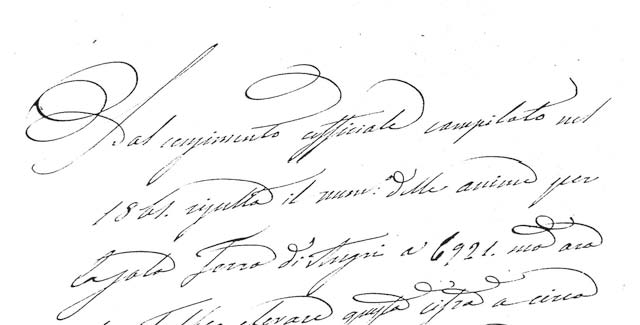 Dal censimento officiale compilato nel
1861. risulta il num: delle anime per
la sola Terra di Angri a 6921. ma ora
elevare questa cifra a circa